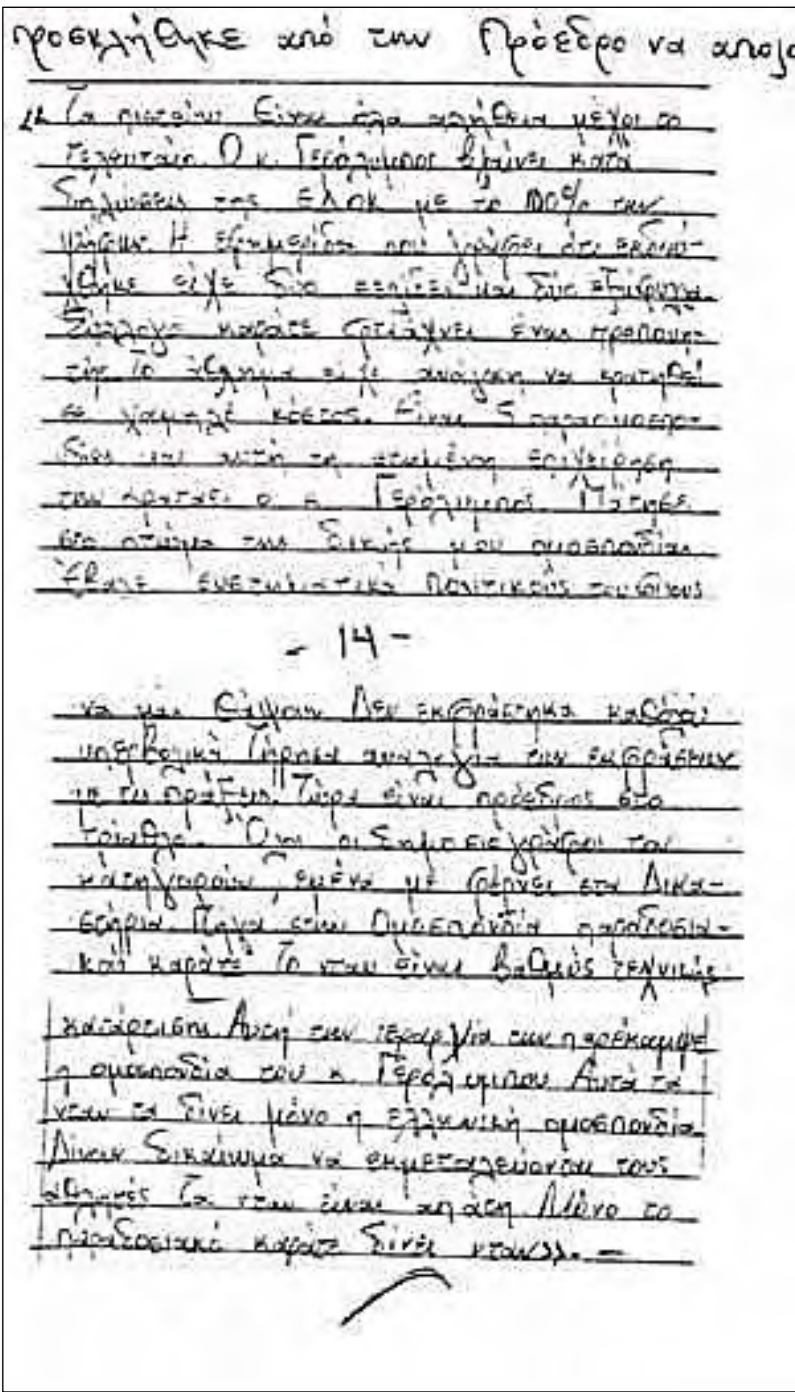 προσκλήθηκε από την Πρόεδρο να απολο
"Τα πιστεύω. Είναι όλα αλήθεια μέχρι το
τελευταίο. Ο κ. Γερόλυμπος βγαίνει κατά
δηλώσεις της ΕΛΟΚ με το 100% των
ψήφων. Η εφημερίδα που γράφει ότι εκδιώ-
χθηκε είχε δύο και δύο
Σύλλογο καράτε φτιάχνει ένας προπονη-
τής. Το άθλημα είχε ανάγκη να κρατηθεί
σε χαμηλό κόστος. Είναι
και αυτή τη επιχείρηση
την κρατάει ο κ. Γερόλυμπος. Πάτησε
στο πτώμα της δικής μου ομοσπονδίας
Έβαλε πολιτικούς του φίλους
- 14 -
να μας Δεν εκφράστηκα καθόλου
υπερβολικά. Τήρησα αναλογία των εκφράσεων
με τις πράξεις. Τώρα είναι πρόεδρος στο
τρίαθλο. Όλοι οι δημοσιογράφοι τον
κατηγορούν, εμένα με φέρνει στα Δικα-
στήρια. Πήγα στην Ομοσπονδία παραδοσια-
κού καράτε. Το νταν είναι βαθμός τεχνικής
κατάρτισης. Αυτή την ιεραρχία την παρέκαμψε
η ομοσπονδία του κ. Γερόλυμπου. Αυτά τα
νταν τα δίνει μόνο η ελληνική ομοσπονδία.
Δίνουν δικαίωμα να εκμεταλεύονται τους
αθλητές. Τα νταν είναι απάτη. Μόνο το
παραδοσιακό καράτε δίνει νταν». —